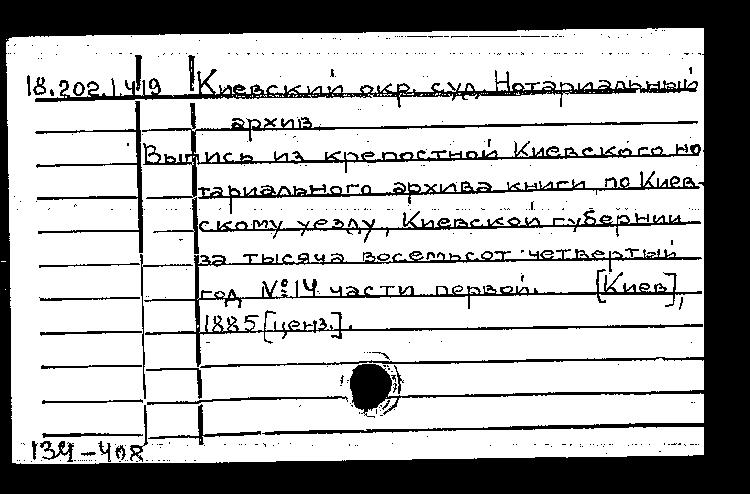 18.202.1.419 Киевский окр. суд. Нотариальный
архив.
Выпись из крепостной Киевского но
тариального архива книги по Киев-
скому уезду, Киевской губернии
за тысяча восемьсот четвертый
год № 14 части первой. [Киев],
1885 [ценз.].
134-408